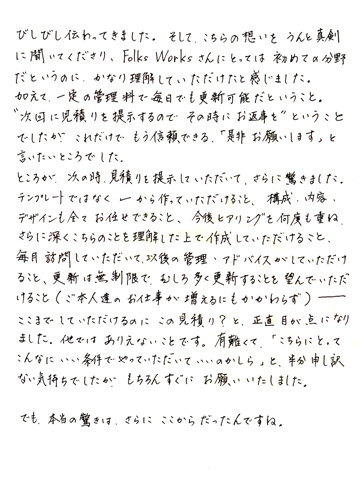 びしびし伝わってきました。そして、こちらの想いをうんと真剣
に聞いてくださり、Folks Worksさんにとっては初めての分野
だというのに、かなり理解していただけたと感じました。
加えて、一定の管理料で毎日でも更新可能だということ。
"次回に見積りを提示するので その時にお返事を"ということ
でしたが、これだけで もう信頼できる、「是非 お願いします」と
言いたいところでした。
ところが、次の時、見積りを提示していただいて、さらに驚きました。
テンプレートではなく 一から作っていただけること、構成・内容・
デザインも全てお任せできること、今後ヒアリングを何度も重ね、
さらに深くこちらのことを理解した上で作成していただけること、
毎月訪問していただいて以後の管理・アドバイスがしていただけ
ること、更新は無制限で、むしろ多く更新することを望んでいただ
けること（ご本人達の お仕事が増えるにもかかわらず）――
ここまでしていただけるのに この見積り？と、正直目が点になり
ました。他では ありえないことです。有難くて、「こちらにとって
こんなに いい条件でやっていただいていいのかしら」と、半分申し訳
ない気持ちでしたが、もちろんすぐに お願いいたしました。
でも、本当の驚きは、さらに ここからだったんですね。